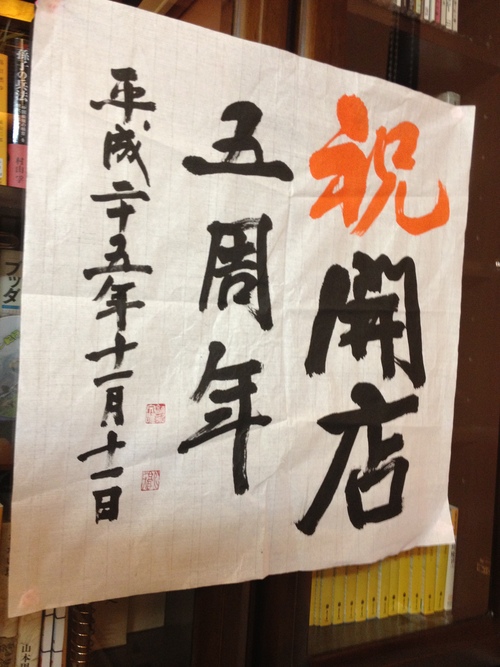 祝開店
五周年
平成二十五年十一月十一日
孫子の兵法
村山孚
ブッダ